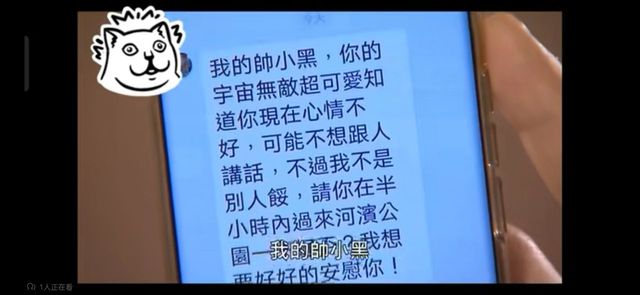 今天
我的帥小黑，你的
宇宙無敵超可愛知
道你現在心情不
好，可能不想跟人
講話，不過我不是
別人餒，請你在半
小時內過來河濱公
園一
？我想
要好好的安慰你！
我的帥小黑
1人正在看